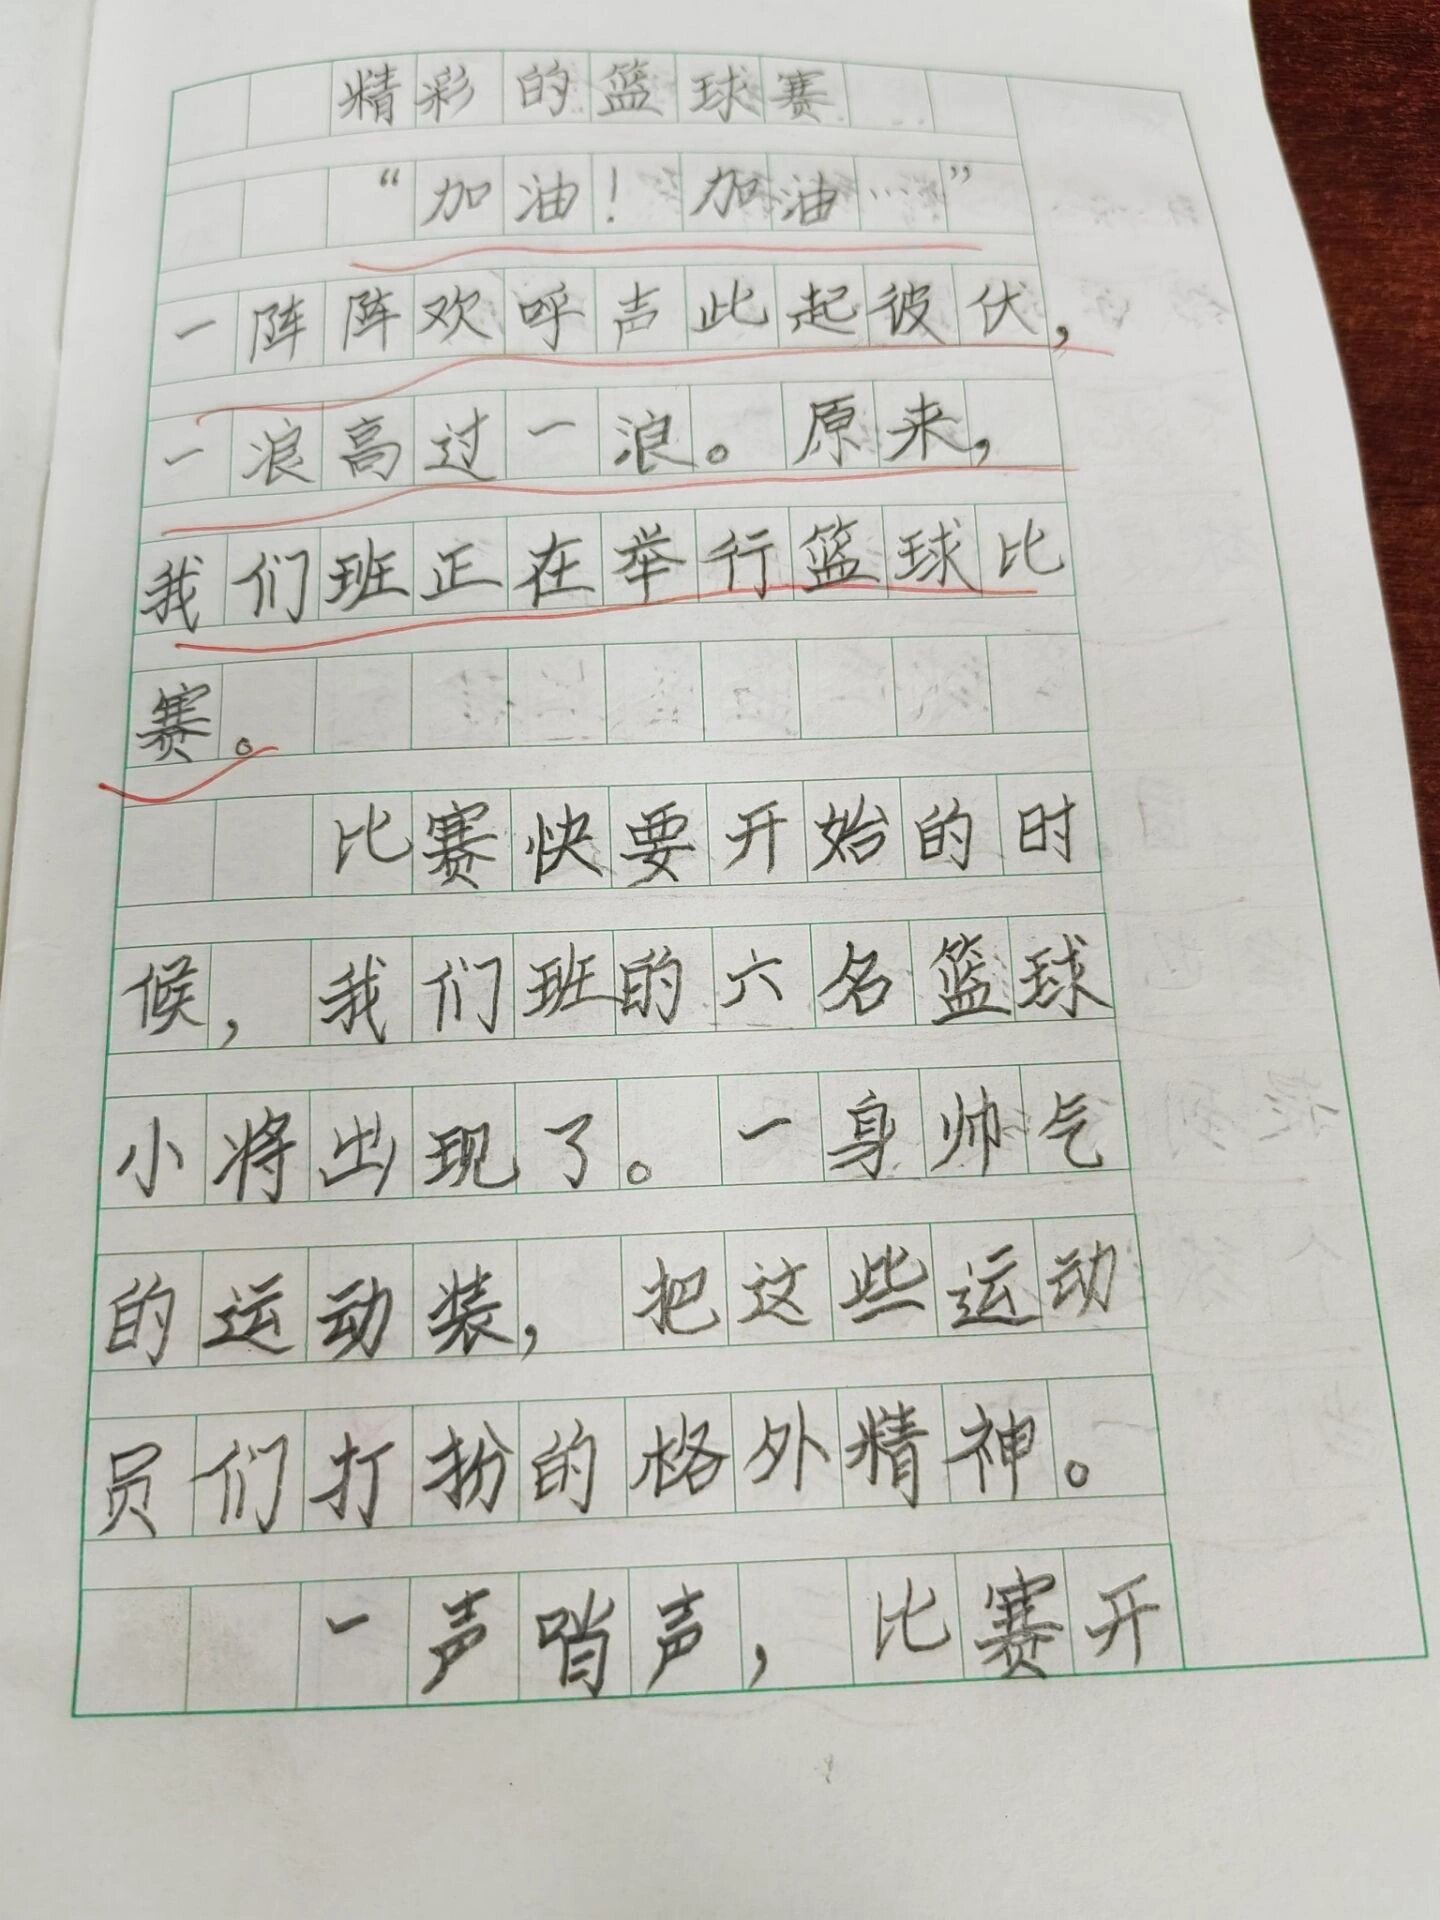 精彩的篮球赛
“加油！加油……”
一阵阵欢呼声此起彼伏，
一浪高过一浪。原来，
我们班正在举行篮球比
赛。
比赛快要开始的时
候，我们班的六名篮球
小将出现了。一身帅气
的运动装，把这些运动
员们打扮的格外精神。
一声哨声，比赛开